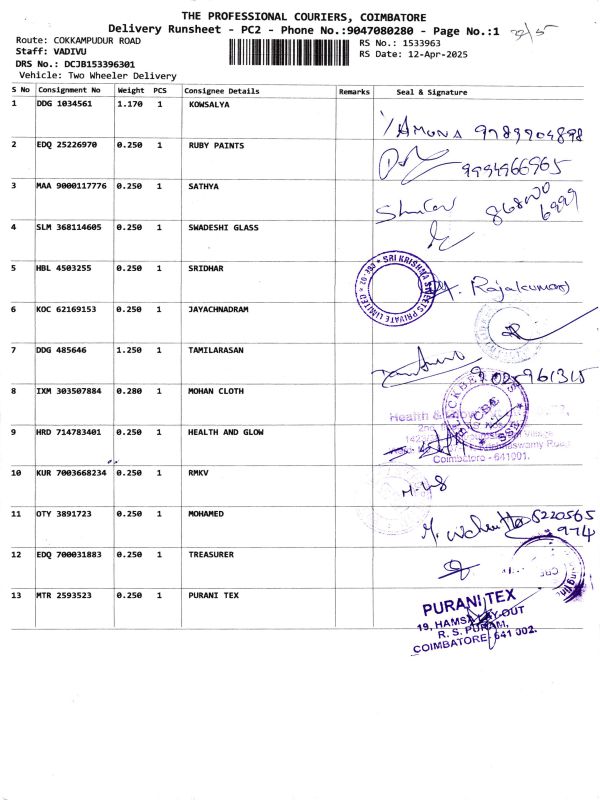 THE PROFESSIONAL COURIERS, COIMBATORE
Delivery Runsheet - PC2 - Phone No.:9047080280 - Page No.:1
Route: COKKAMPUDUR ROAD
RS No.: 1533963
Staff: VADIVU
RS Date: 12-Apr-2025
DRS No.: DCJB153396301
Vehicle: Two Wheeler Delivery
S No Consignment No Weight PCS Consignee Details Remarks Seal & Signature
1 DDG 1034561 1.170 1 KOWSALYA
YAMUNA 9789904898
2 EDQ 25226970 0.250 1 RUBY PAINTS
9994966965
3 MAA 9000117776 0.250 1 SATHYA
4 SLM 368114605 0.250 1 SWADESHI GLASS
5 HBL 4503255 0.250 1 SRIDHAR
SRI KRISHNA SWEETS PRIVATE LIMITED
Rajakumar
6 KOC 62169153 0.250 1 JAYACHNADRAM
7 DDG 485646 1.250 1 TAMILARASAN
9025961315
8 IXM 303507884 0.280 1 MOHAN CLOTH
CBE
9 HRD 714783401 0.250 1 HEALTH AND GLOW
Health &
Coimbatore - 641001.
10 KUR 7003668234 0.250 1 RMKV
11 OTY 3891723 0.250 1 MOHAMED
12 EDQ 700031883 0.250 1 TREASURER
13 MTR 2593523 0.250 1 PURANI TEX
PURANI TEX
19, HAMSA LAY-OUT
R. S. PURAM,
COIMBATORE-641 002.